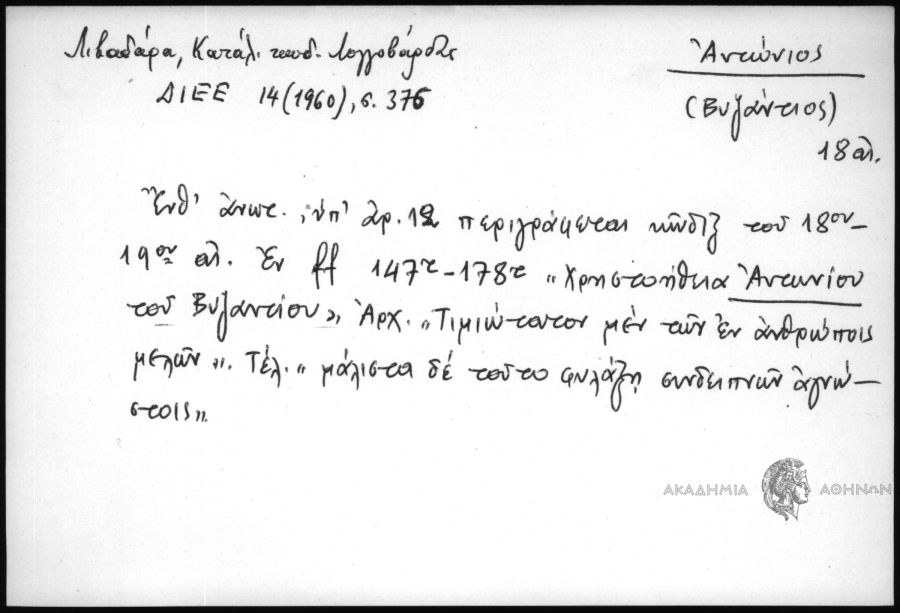 Λιβαδάρα, Κατάλ. κωδ. Λογγοβάρδας
ΔΙΕΕ 14 (1960), σ. 376
Ἀντώνιος
(Βυζάντιος)
18 αἰ.
Ἔνθ' ἀνωτ., ὑπ' ἀρ. 12 περιγράφεται κῶδιξ τοῦ 18ου–
19ου αἰ. Ἐν ff 147r–178r "Χρηστοήθεια Ἀντωνίου
τοῦ Βυζαντίου", Ἀρχ. "Τιμιώτατον μέν τῶν ἐν ἀνθρώποις
μελῶν". Τέλ. "μάλιστα δέ τοῦτο φυλάξῃ συνδειπνῶν ἀγνώ–
στοις".
ΑΚΑΔΗΜΙΑ ΑΘΗΝΩΝ